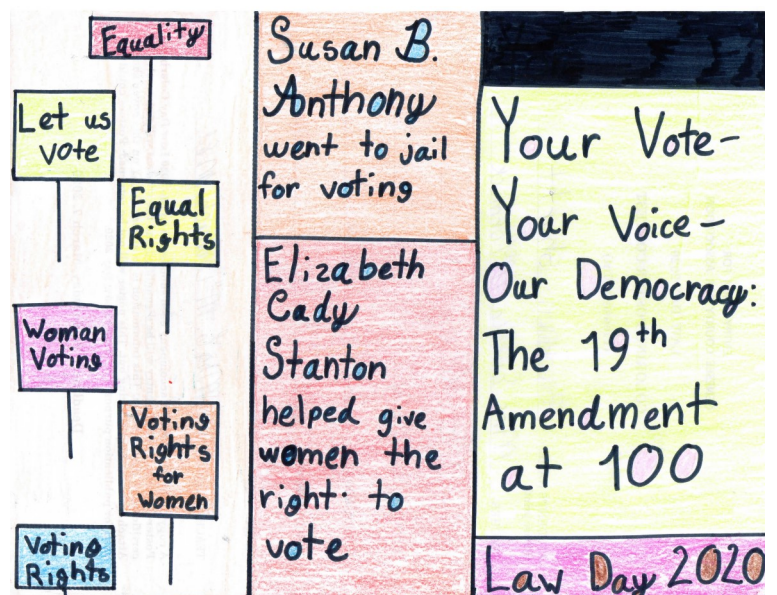 Equality
Let us
vote
Equal
Rights
Woman
Voting
Voting
Rights
for
Women
Voting
Rights
Susan B.
Anthony
went to jail
for voting
Elizabeth
Cady
Stanton
helped give
women the
right to
vote
Your Vote-
Your Voice-
Our Democracy:
The 19th
Amendment
at 100
Law Day 2020